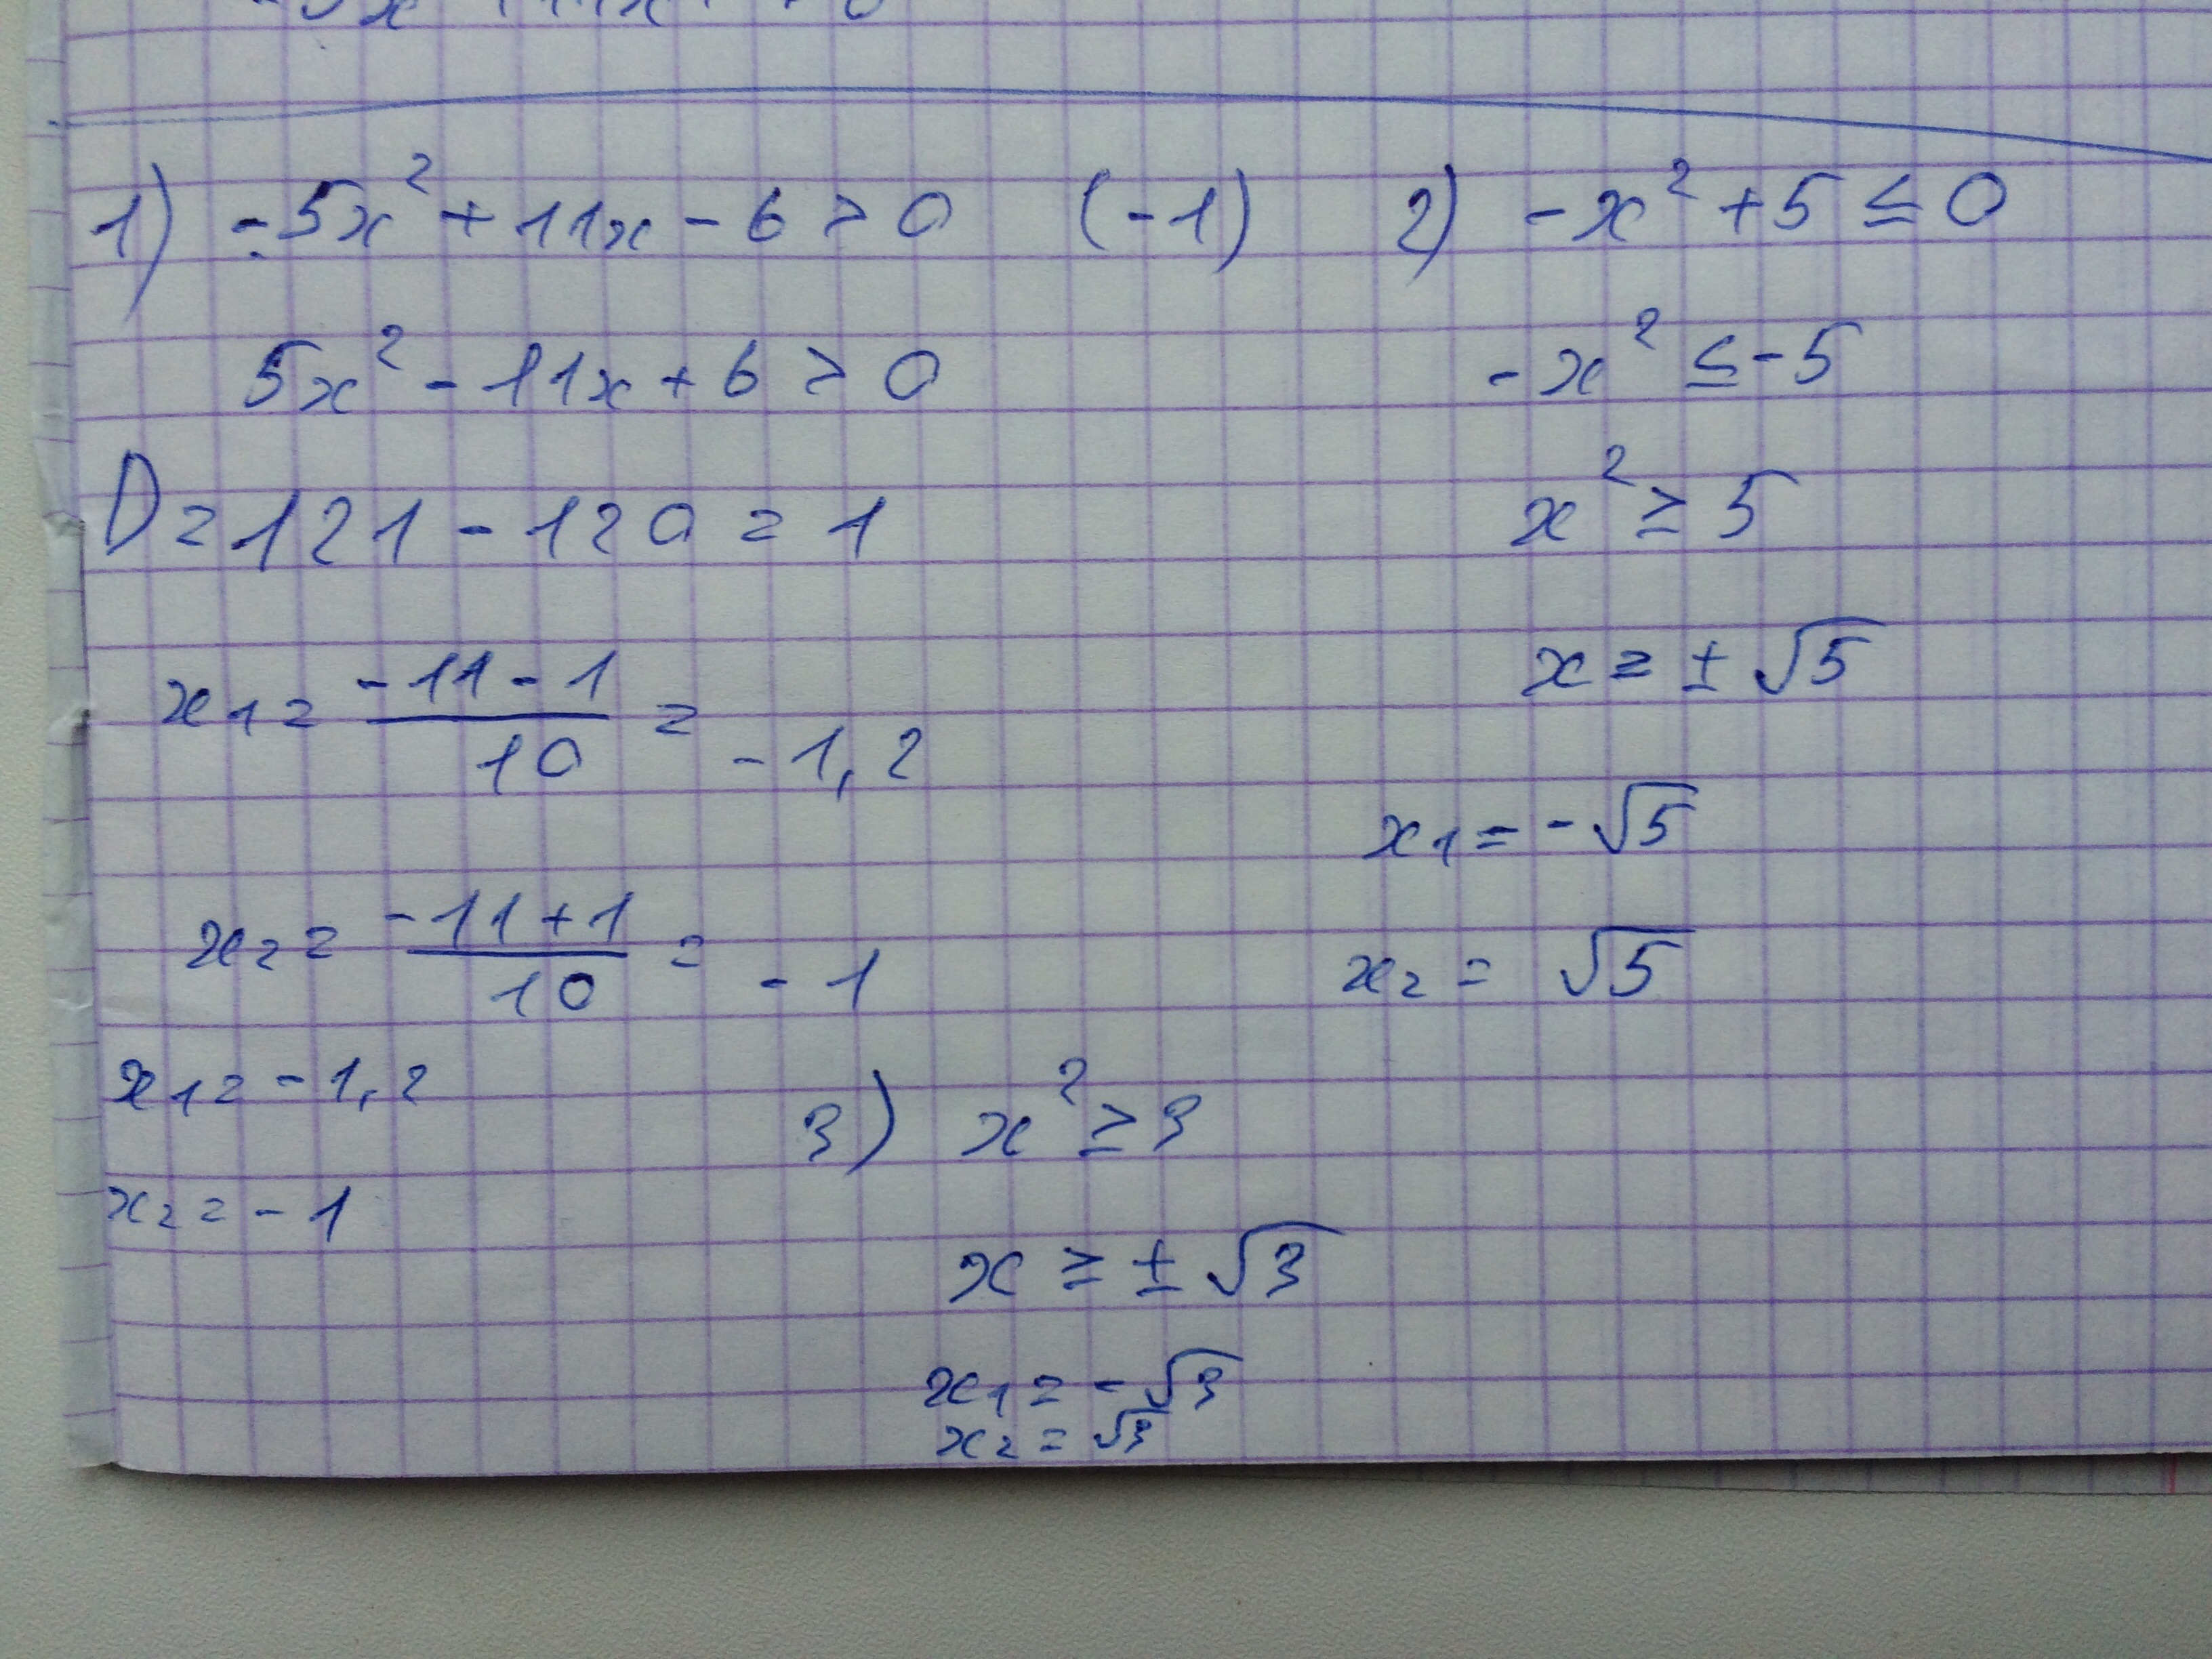 1) -5x² + 11x - 6 > 0 (-1)
5x² - 11x + 6 > 0
D = 121 - 120 = 1
x₁ = \frac{-11-1}{10} = -1,2
x₂ = \frac{-11+1}{10} = -1
x₁ = -1,2
x₂ = -1
2) -x² + 5 ≤ 0
-x² ≤ -5
x² ≥ 5
x ≥ ± √5
x₁ = -√5
x₂ = √5
3) x² ≥ 3
x ≥ ± √3
x₁ = -√3
x₂ = √3